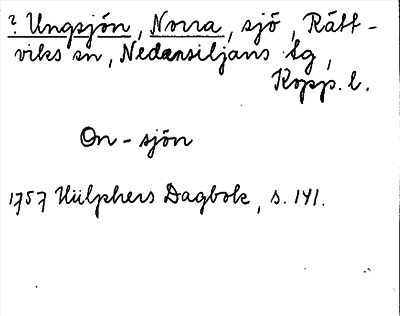 ? Ungsjön, Norra, sjö, Rätt-
viks sn, Nedansiljans tg,
Kopp. l.
On-sjön
1757 Hülphers Dagbok, s. 141.